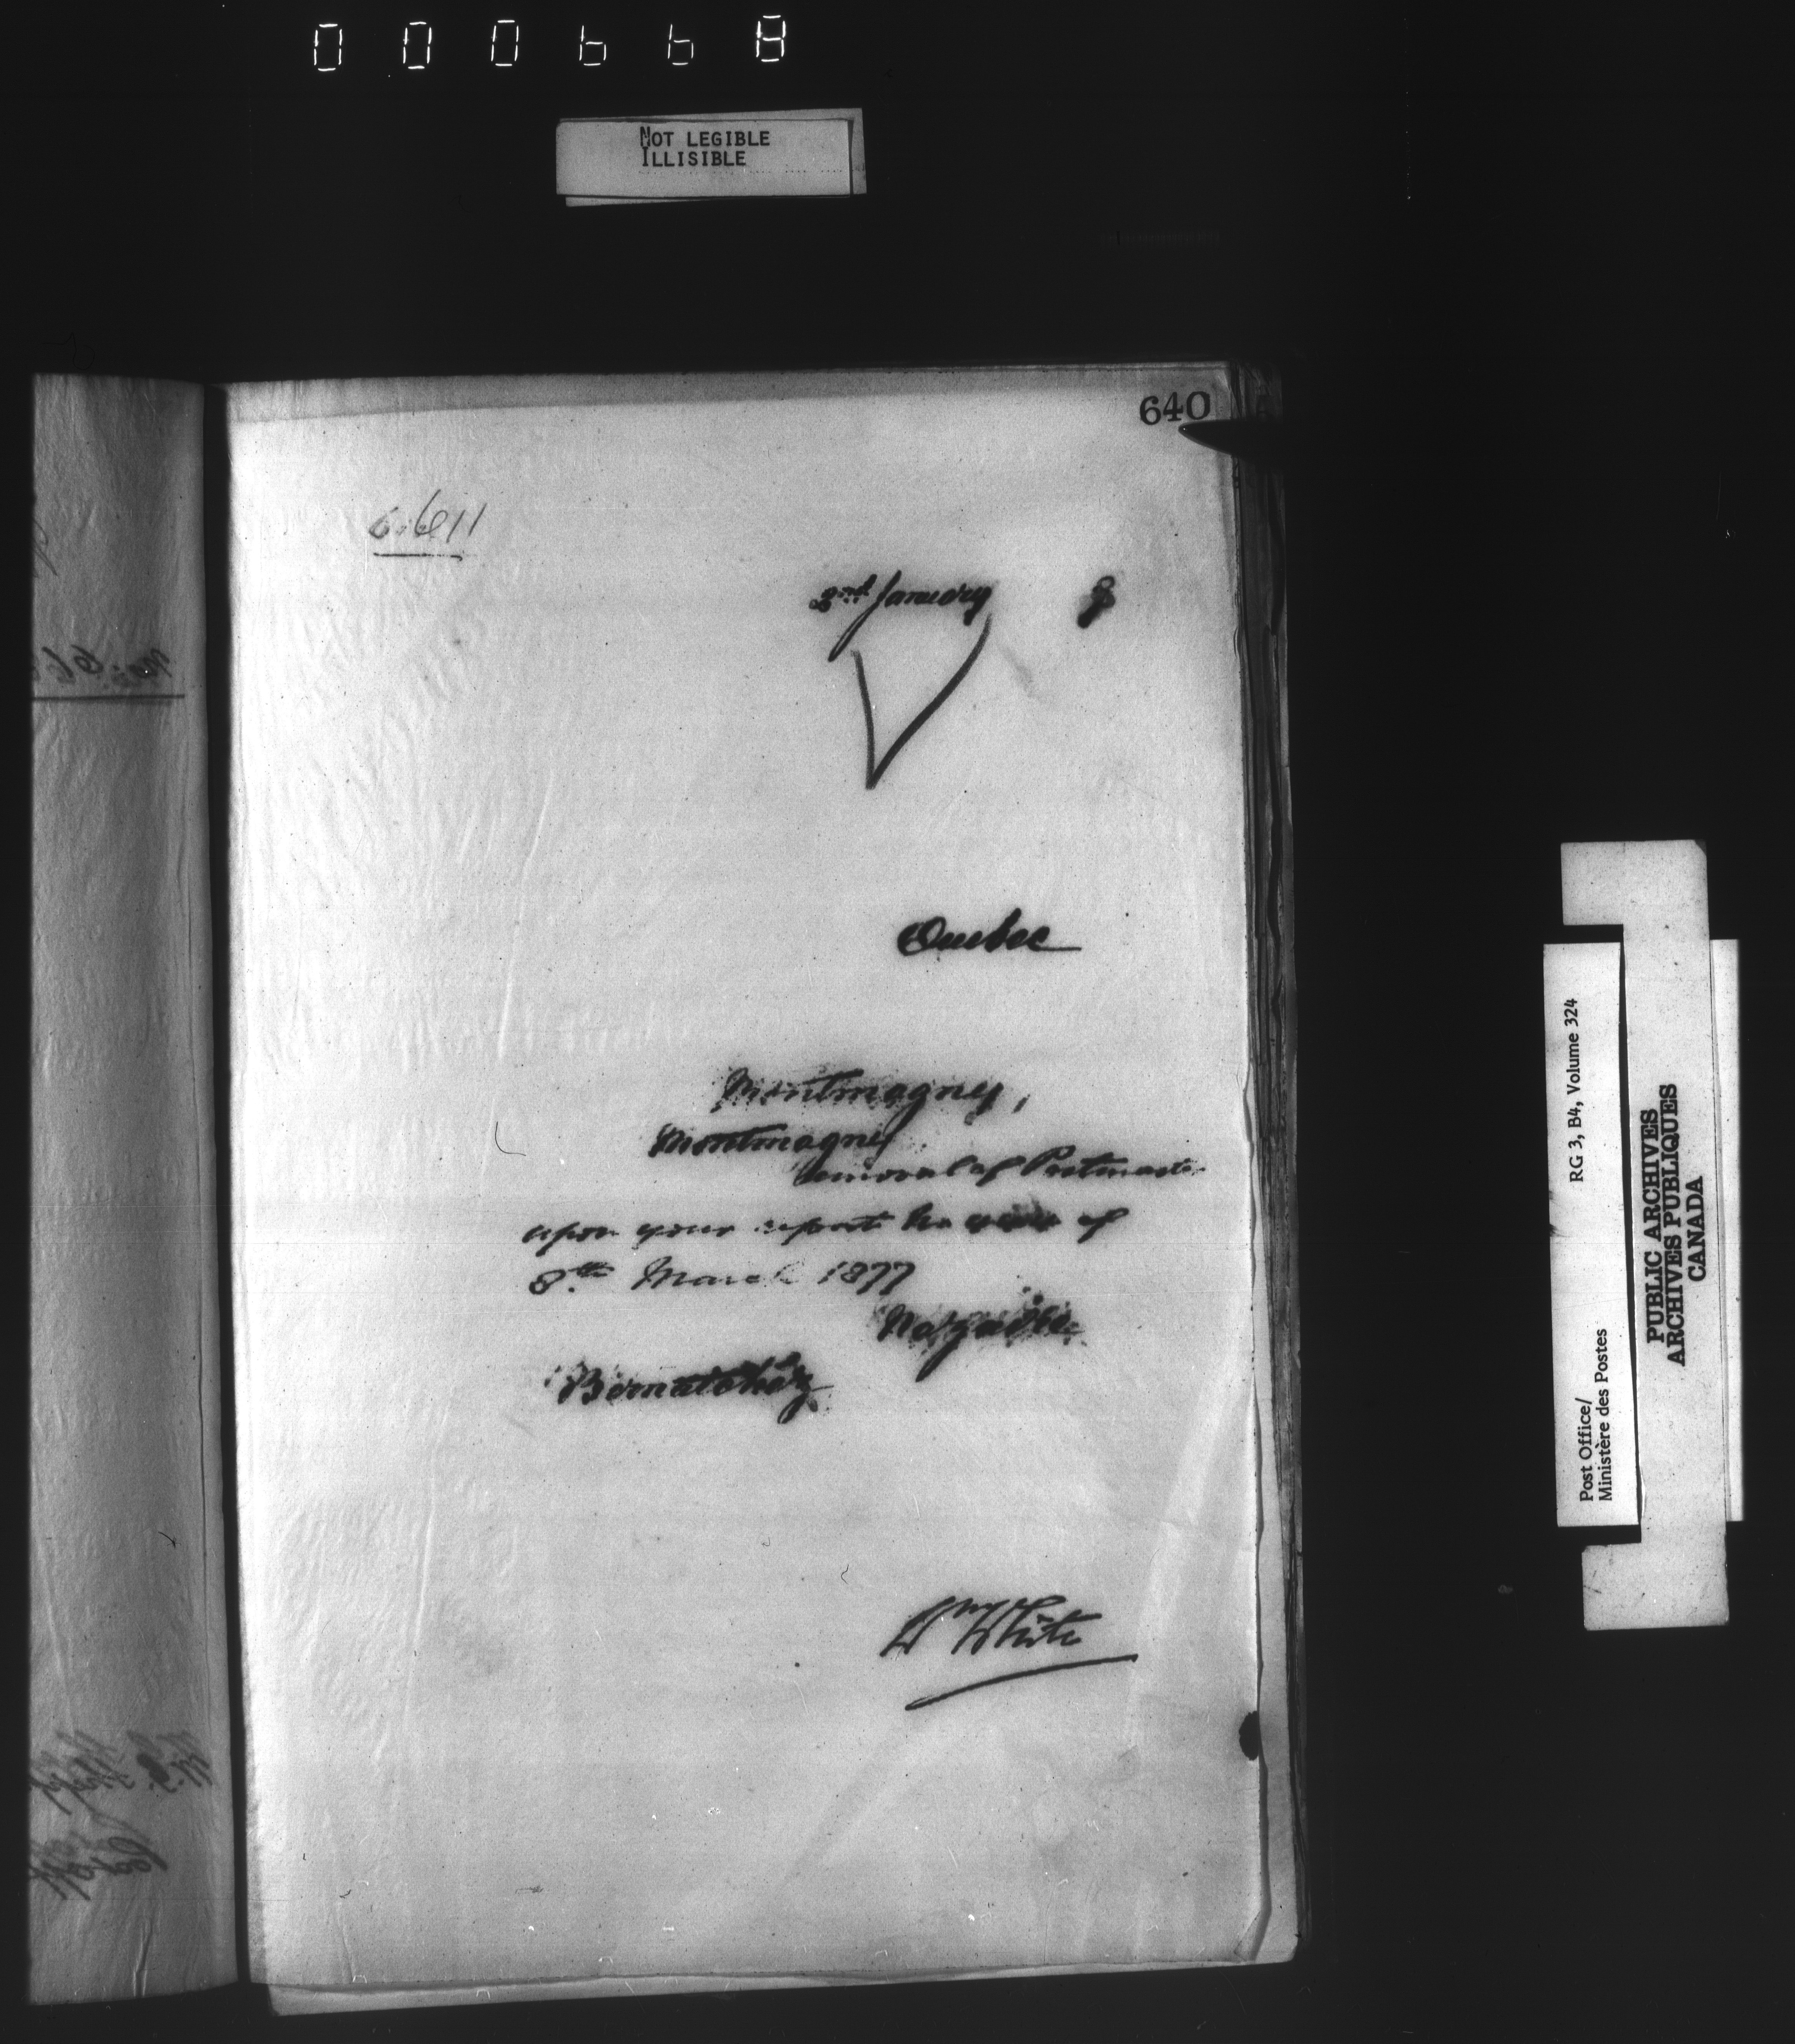 NOT LEGIBLE
ILLISIBLE
640
6.611
2nd January 8
Quebec
Montmagny,
Montmagny
removal of Postmaster
upon your report No of
8th March 1877
Nazaire
Bernatchez
Wm White
RG 3, B4, Volume 324
Post Office/
Ministère des Postes
PUBLIC ARCHIVES
ARCHIVES PUBLIQUES
CANADA